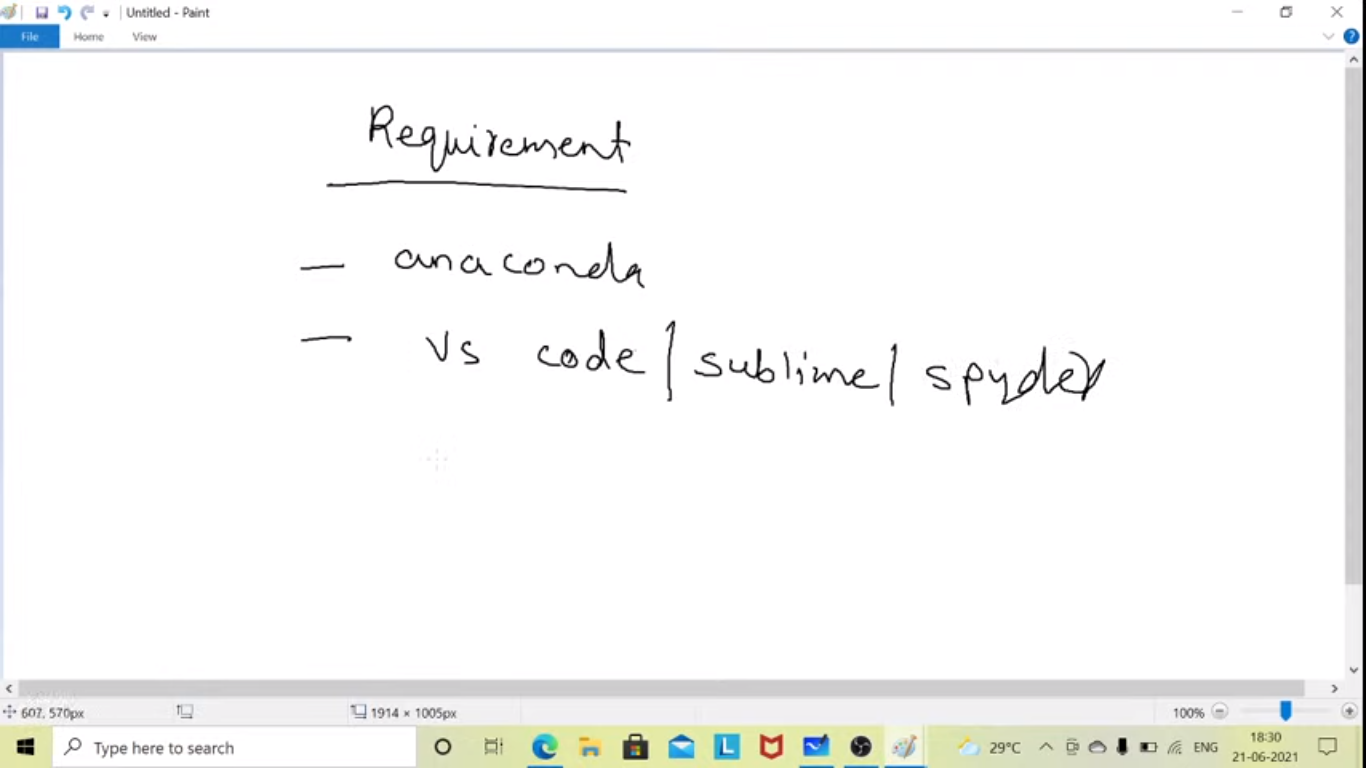 Untitled - Paint
File Home View
Requirement
— anaconda
— vs code | sublime | spyder
607, 570px 1914 × 1005px 100%
Type here to search L 29°C ENG 18:30
21-06-2021